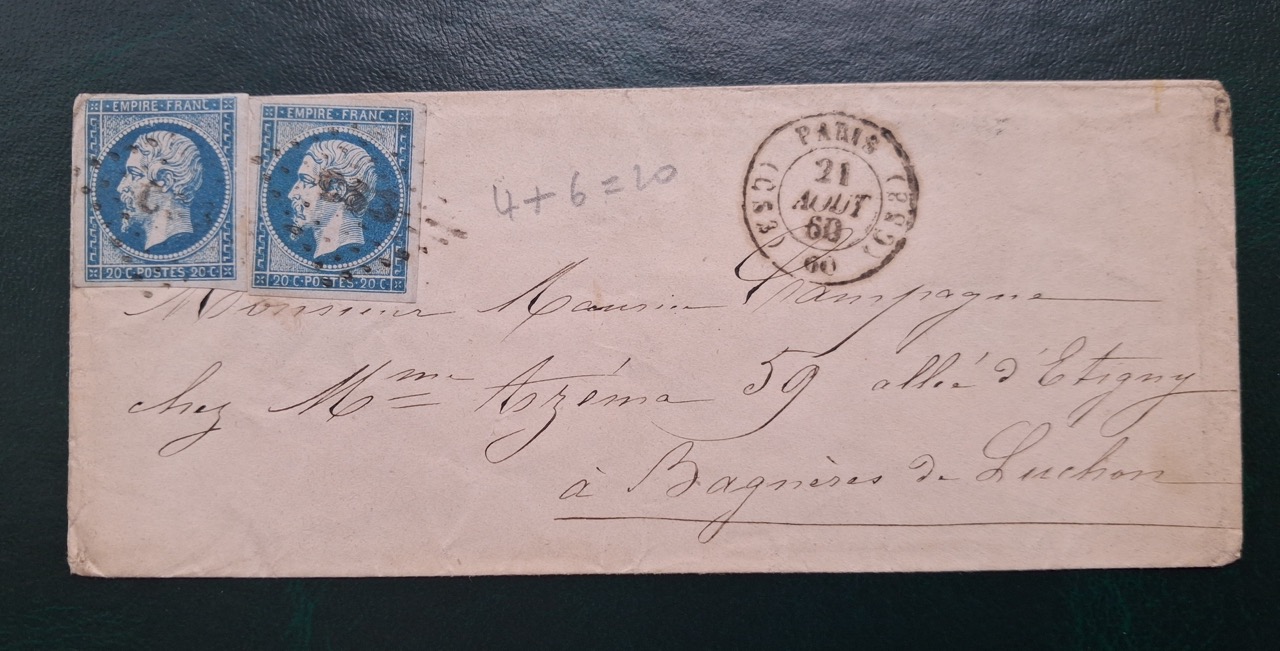 EMPIRE·FRANC·
20 C·POSTES·20 C·
EMPIRE·FRANC·
20 C·POSTES·20 C·
4+6=10
PARIS
21
AOUT
60
(60)
Monsieur Maurice Campagne
chez Mme Azéma 59 allée d'Etigny
à Bagnères de Luchon